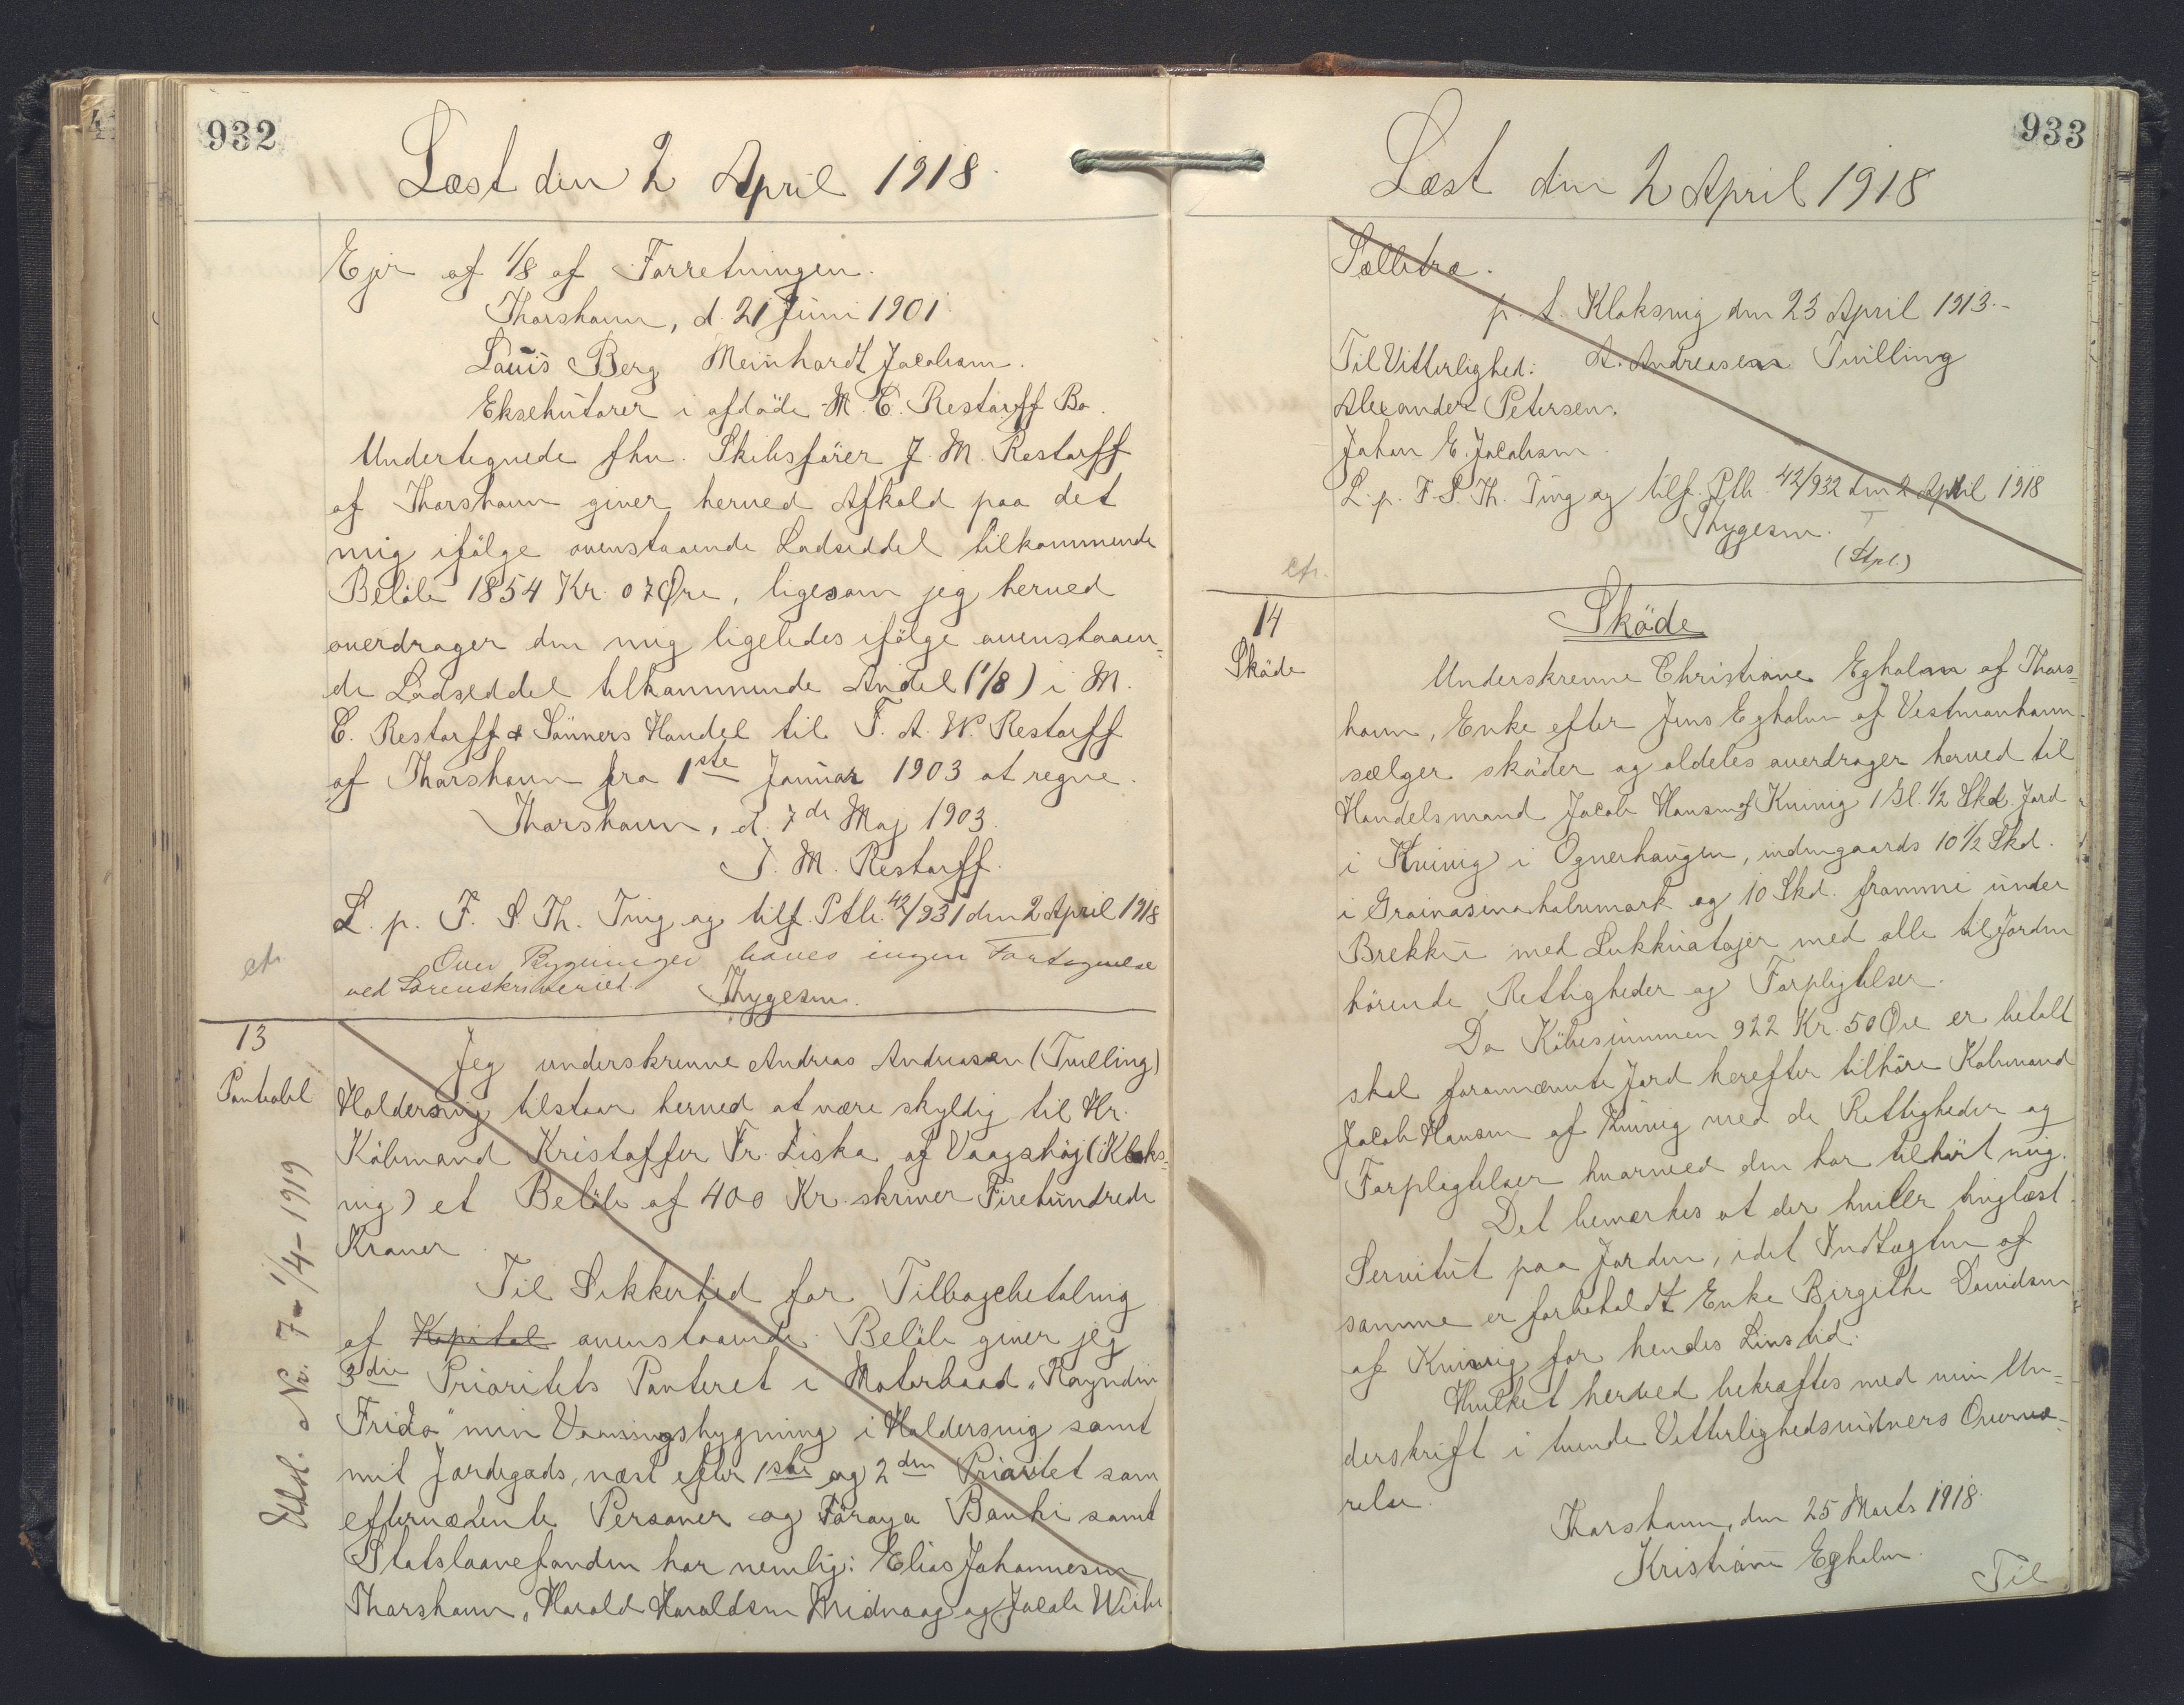 932
Læst den 2 April 1918.
Ejer af 1/8 af Forretningen.
Thorshavn, d. 21 Juni 1901.
Louis Berg Meinhardt Jacobsen.
Eksekutorer i afdöde M. C. Restorff Bo.
Undertegnede fhv. Skibsförer J. M. Restorff
af Thorshavn giver herved Afkald paa det
mig ifölge ovenstaaende Lodseddel tilkommende
Belöb 1854 Kr. 07 Øre, ligesom jeg herved
overdrager den mig ligeledes ifölge ovenstaaen=
de Lodseddel tilkommende Andel (1/8) i M.
C. Restorff & Sönners Handel til F. A. W. Restorff
af Thorshavn fra 1ste Januar 1903 at regne.
Thorshavn, d. 7de Maj 1903.
J. M. Restorff.
L. p. F. S. Th. Ting og tilf. Ptb. 42/931 den 2 April 1918
Over Bygninger haves ingen Fortegnelse
ved Sorenskriveriet. Thygesen.
cfr.
13
Panteobl.
Jeg underskrevne Andreas Andreasen (Tvilling)
Haldersvig tilstaar herved at være skyldig til Hr.
Köbmand Kristoffer Fr. Liska af Vaagshöj (Klaks=
vig) et Belöb af 400 Kr. skriver Firehundrede
Kroner.
Til Sikkerhed for Tilbagebetaling
af Kapital ovenstaaende Belöb giver jeg
3die Prioritets Panteret i Motorbaad "Royndin
Frida" min Vaaningsbygning i Haldersvig samt
mit Jordegods, næst efter 1ste og 2den Prioritet som
efternævnte Personer og Föroya Banki samt
Statslaanefonden har nemlig: Elias Johannesen
Thorshavn, Harald Haraldsen Midvaag og Jacob Weihe
Udsl. Nr. 7 - 1/4 - 1919
933
Læst den 2 April 1918
Sælletræ.
p. t. Klaksvig den 23 April 1913.-
Til Vitterlighed: A. Andreasen Tvilling
Alexander Petersen.
Johan E. Jacobsen.
L. p. F. S. Th. Ting og tilf. Ptb. 42/932 den 2 April 1918
Thygesen.
(Stpl.)
cfr.
14
Sköde
Sköde
Underskrevne Christiane Egholm af Thors=
havn, Enke efter Jens Egholm af Vestmanhavn
sælger sköder og aldeles overdrager herved til
Handelsmand Jacob Hansen af Kvivig 1 Gl. 1/2 Skd. Jord
i Kvivig i Ognerhaugen, indengaards 10 1/2 Skd.
i Grainasinahalvmark og 10 Skd. frammi under
Brekku med Lukkuatojer med alle til Jorden
hörende Rettigheder og Forpligtelser.
Da Köbesummen 922 Kr. 50 Øre er betalt
skal forannævnte Jord herefter tilhöre Köbmand
Jacob Hansen af Kvivig med de Rettigheder og
Forpligtelser hvormed den har tilhört mig.
Det bemærkes at der hviler tinglæst
Servitut paa Jorden, idet Indtægten af
samme er forbeholdt Enke Birgithe Davidsen
af Kvivig for hendes Livstid.
Hvilket herved bekræftes med min Un=
derskrift i tvende Vitterlighedsvidners Overvæ-
relse.
Thorshavn, den 25 Marts 1918.
Kristiane Egholm.
Til